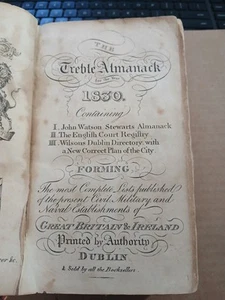 THE
Treble Almanack
1830.
Containing
I. John Watson Stewarts Almanack
II The English Court Registry
III Wilsons Dublin Directory with
a New Correct Plan of the City
FORMING
The most Complete Lists published
of the present Civil Military and
Naval Establishments of
GREAT BRITAIN & IRELAND
Printed by Authority
DUBLIN
& Sold by all the Booksellers.